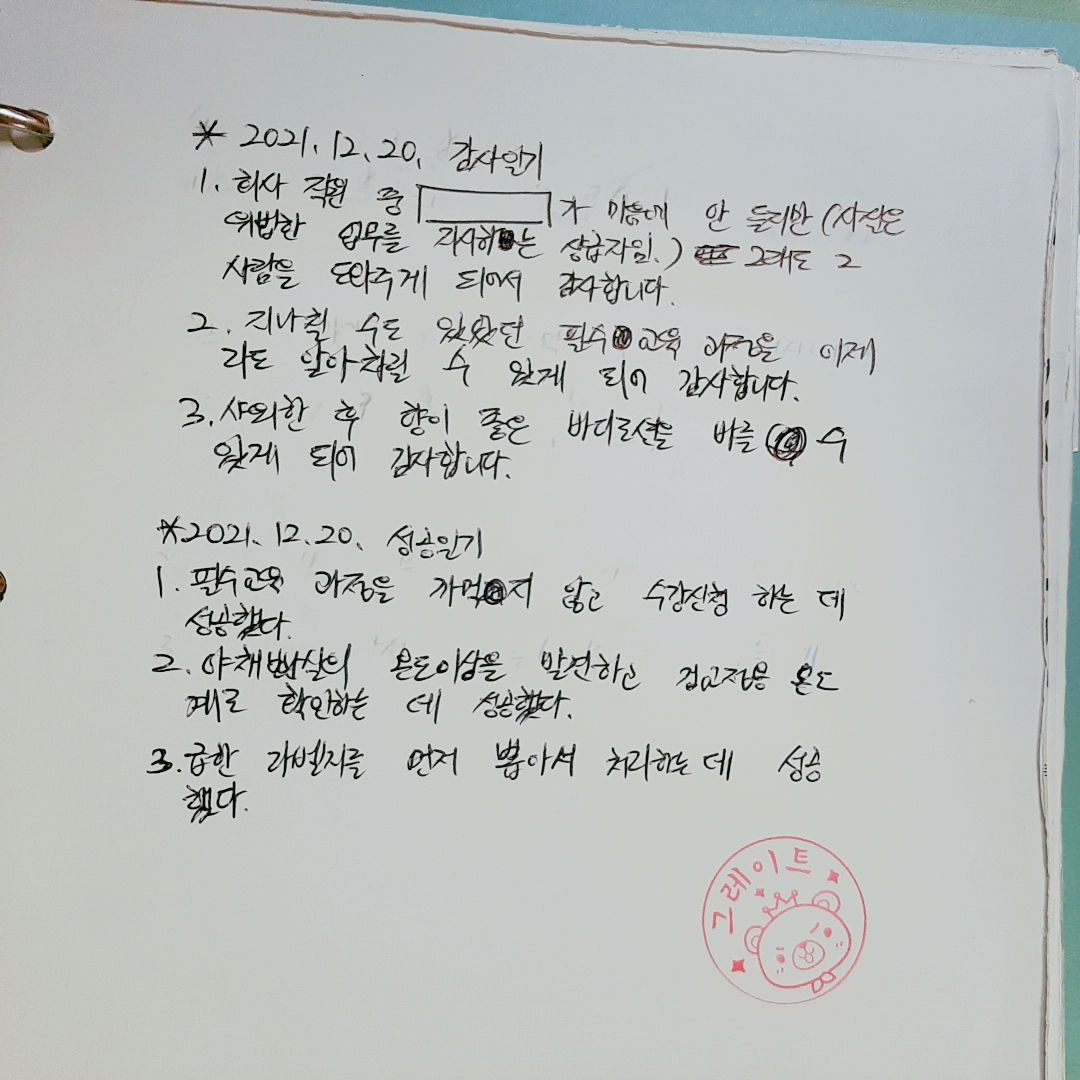 * 2021.12.20. 감사일기
1. 회사 직원 중 가 마음에 안 들지만 (사실은
위법한 업무를 지시하는 상급자임.) 그래도 그
사람을 도와주게 되어서 감사합니다.
2. 지나칠 수도 있었던 필수교육 과정을 이제
라도 알아차릴 수 있게 되어 감사합니다.
3. 샤워한 후 향이 좋은 바디로션을 바를 수
있게 되어 감사합니다.
*2021.12.20. 성공일기
1. 필수교육 과정을 까먹지 않고 수강신청 하는 데
성공했다.
2. 야채밥상의 온도이상을 발견하고 검교정용 온도
계로 확인하는 데 성공했다.
3. 급한 라벨지를 먼저 뽑아서 처리하는 데 성공
했다.
그레이트